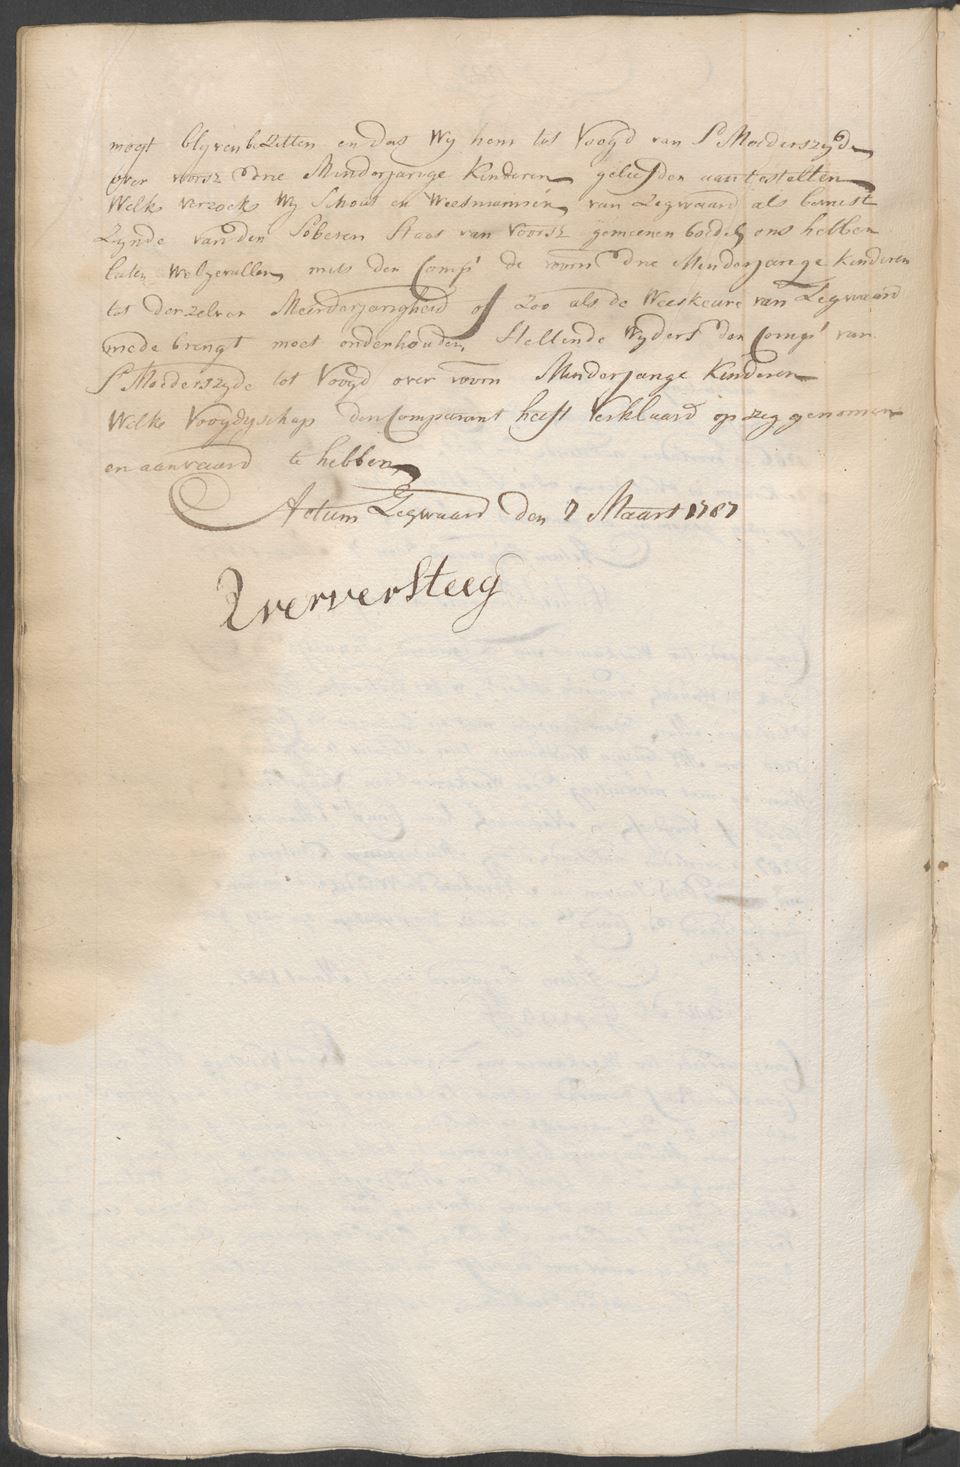 mogt blyven bezitten en das Wy hem tot Voogd van S Moederszyde
over voorsz drie Minderjarige Kinderen geliefden aantestellen
Welk verzoek Wy Schout en Weesmannen van Zegwaard als bewust
Zynde van den Soberen Staat van voorsz gemeenen boedel ons hebben
laten Welgevallen mits den Comp.t de voorn drie Minderjarige Kinderen
tot derzelver Meerderjarigheid of zoo als de Weeskeure van Zegwaard
mede brengt moet onderhouden, Stellende Wyders den Comp.t van
S Moederszyde tot Voogd over voorn Minderjarige Kinderen
Welke Voogdyschap den Comparant heeft Verklaard op zig genomen
en aanvaard te hebben
Actum Zegwaard den 7 Maart 1787
verversteeg